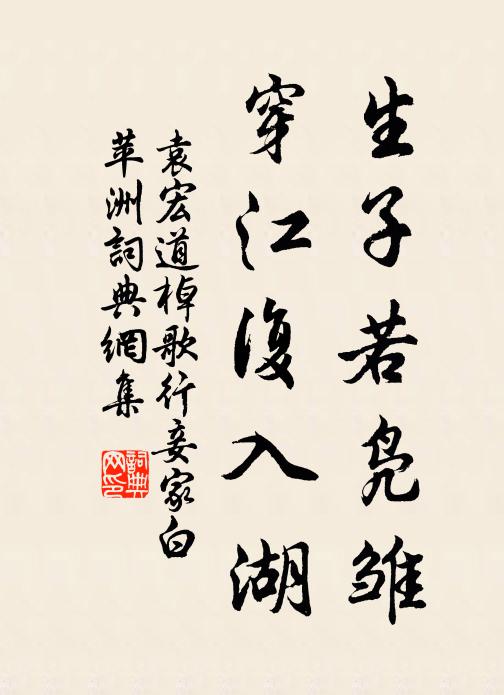 生子若凫雏
穿江復入湖
袁宏道棹歌行妾家白
苹洲詞典網集
詞典网印